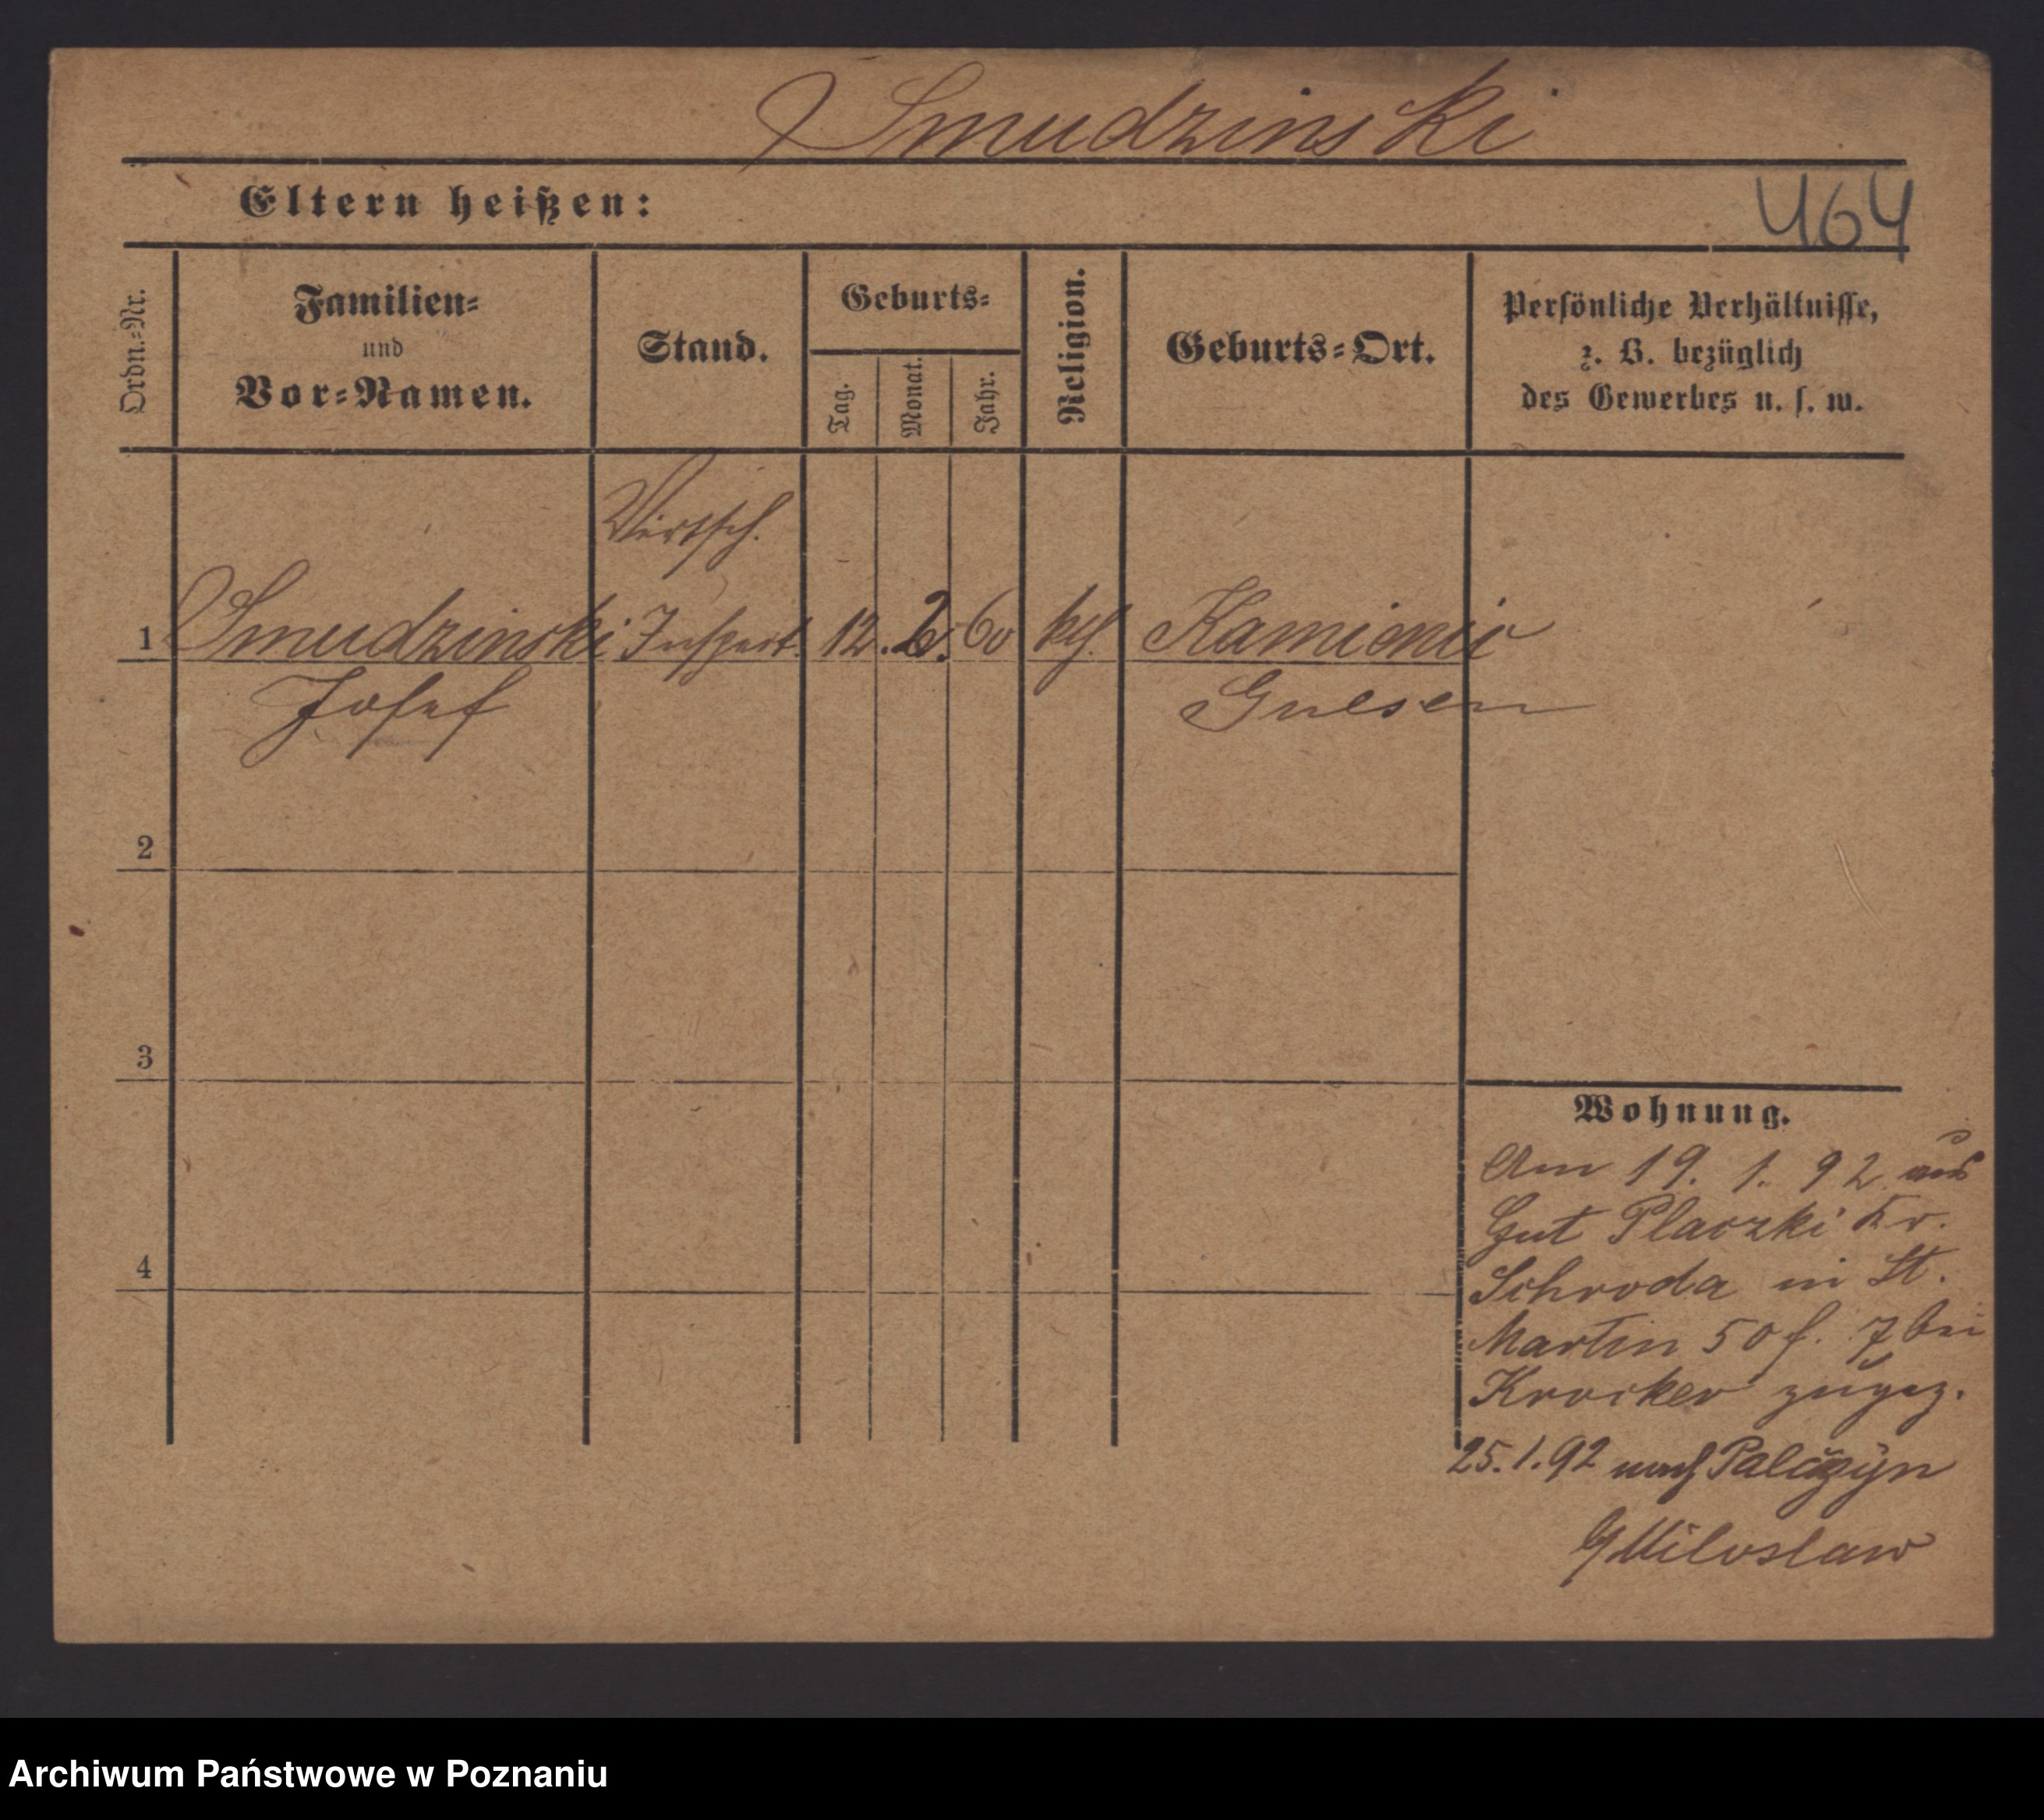 Smudzinski
Eltern heißen:
464
Ordn.-Nr.
Familien-
und
Vor-Namen.
Stand.
Geburts-
Tag.
Monat.
Jahr.
Religion.
Geburts-Ort.
Persönliche Verhältnisse,
z. B. bezüglich
des Gewerbes u. s. w.
Wirtsch.
1 Smudzinski Inspect. 12. 2. 60 kth. Kamieniec
Josef Gnesen
2
3
4
Wohnung.
Am 19. 1. 92 aus
Gut Placzki Kr.
Schroda in St.
Martin 50 f. 7 bei
Krocker zugez.
25.1.92 nach Palczyn
Miloslaw
Archiwum Państwowe w Poznaniu